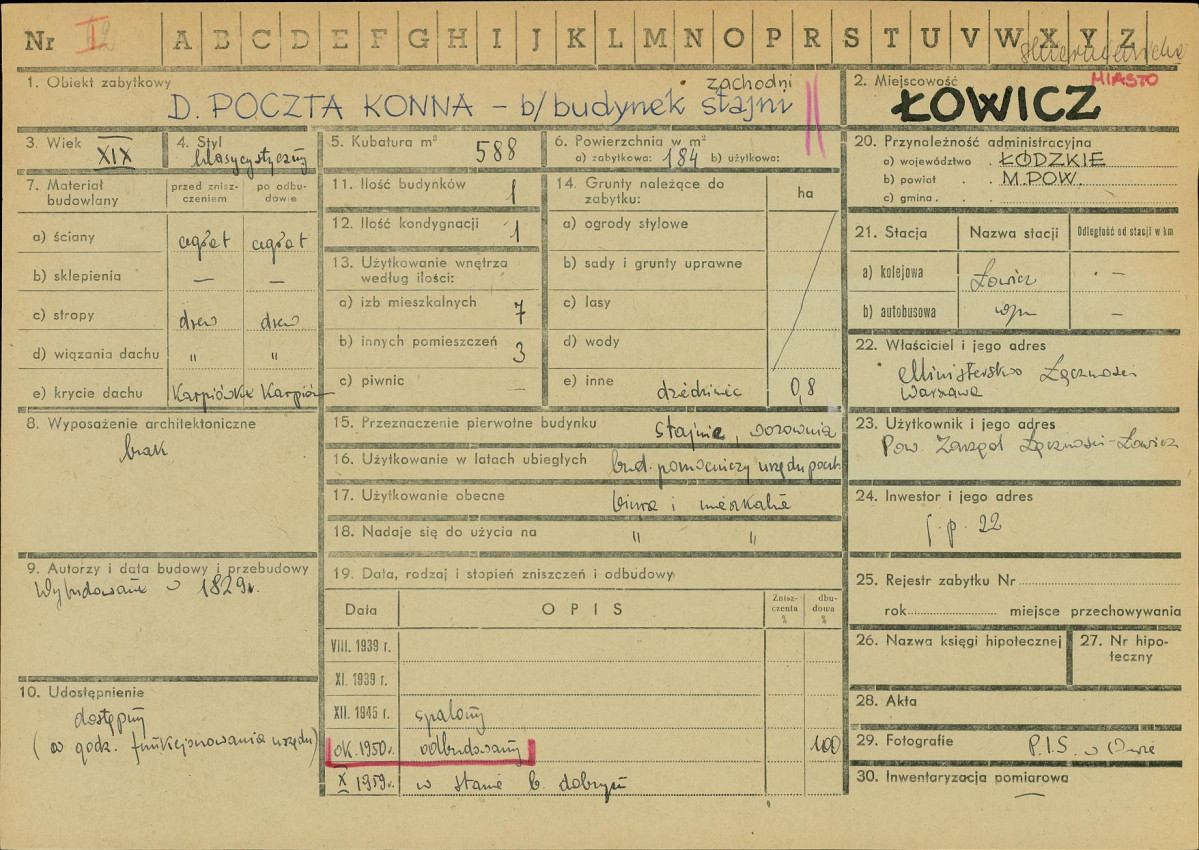 Nr I A B C D E F G H I J K L M N O P R S T U V W X Y Z
1. Obiekt zabytkowy
D. POCZTA KONNA – b/ budynek stajni
zachodni
2. Miejscowość
MIASTO
ŁOWICZ
3. Wiek XIX
4. Styl klasycystyczny
5. Kubatura m³ 588
6. Powierzchnia w m²
a) zabytkowa: 184 b) użytkowa:
20. Przynależność administracyjna
a) województwo . ŁÓDZKIE
b) powiat . . M.POW.
c) gmina . . .
7. Materiał budowlany
przed znisz-
czeniem
po odbu-
dowie
a) ściany cegła cegła
b) sklepienia — —
c) stropy drew drew
d) wiązania dachu " "
e) krycie dachu Karpiówka Karpiów
11. Ilość budynków 1
12. Ilość kondygnacji 1
13. Użytkowanie wnętrza
według ilości:
a) izb mieszkalnych 7
b) innych pomieszczeń 3
c) piwnic —
14. Grunty należące do
zabytku:
ha
a) ogrody stylowe
b) sady i grunty uprawne
c) lasy
d) wody
e) inne dziedziniec 0,8
21. Stacja Nazwa stacji Odległość od stacji w km
a) kolejowa Łowicz —
b) autobusowa –
22. Właściciel i jego adres
Ministerstwo Łączności
Warszawa
8. Wyposażenie architektoniczne
brak
15. Przeznaczenie pierwotne budynku stajnie, wozownia
16. Użytkowanie w latach ubiegłych bud. pomocniczy urzędu poczt.
17. Użytkowanie obecne biura i mieszkalne
18. Nadaje się do użycia na " "
23. Użytkownik i jego adres
Pow. Zarząd Łączności-Łowicz
24. Inwestor i jego adres
j. p. 22
9. Autorzy i data budowy i przebudowy
Wybudowane w 1829r.
19. Data, rodzaj i stopień zniszczeń i odbudowy
Data OPIS
Znisz-
czenia
%
dbu-
dowa
%
VIII. 1939 r.
XI. 1939 r.
XII. 1945 r. spalony
ok. 1950 r. odbudowany 100
X 1959r. w stanie b. dobrym
25. Rejestr zabytku Nr
rok miejsce przechowywania
26. Nazwa księgi hipotecznej
27. Nr hipo-
teczny
10. Udostępnienie
dostępny
(w godz. funkcjonowania urzędu)
28. Akta
29. Fotografie P.I.S. w
30. Inwentaryzacja pomiarowa
—